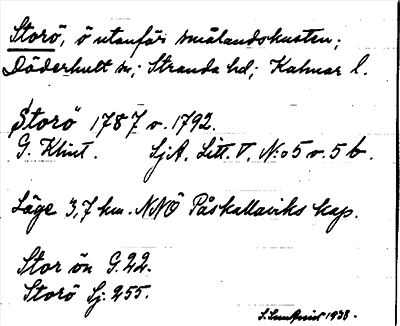 Storö, ö utanför smålandskusten;
Döderhult sn; Stranda hd; Kalmar l.
Storö 1787 o. 1792.
G. Klint. SjA, Litt. V, N:o 5 o. 5 b.
Läge 3,7 km. NNÖ Påskallaviks kap.
Stor ön G. 22.
Storö Sj. 255.
S. Lundqvist 1938.